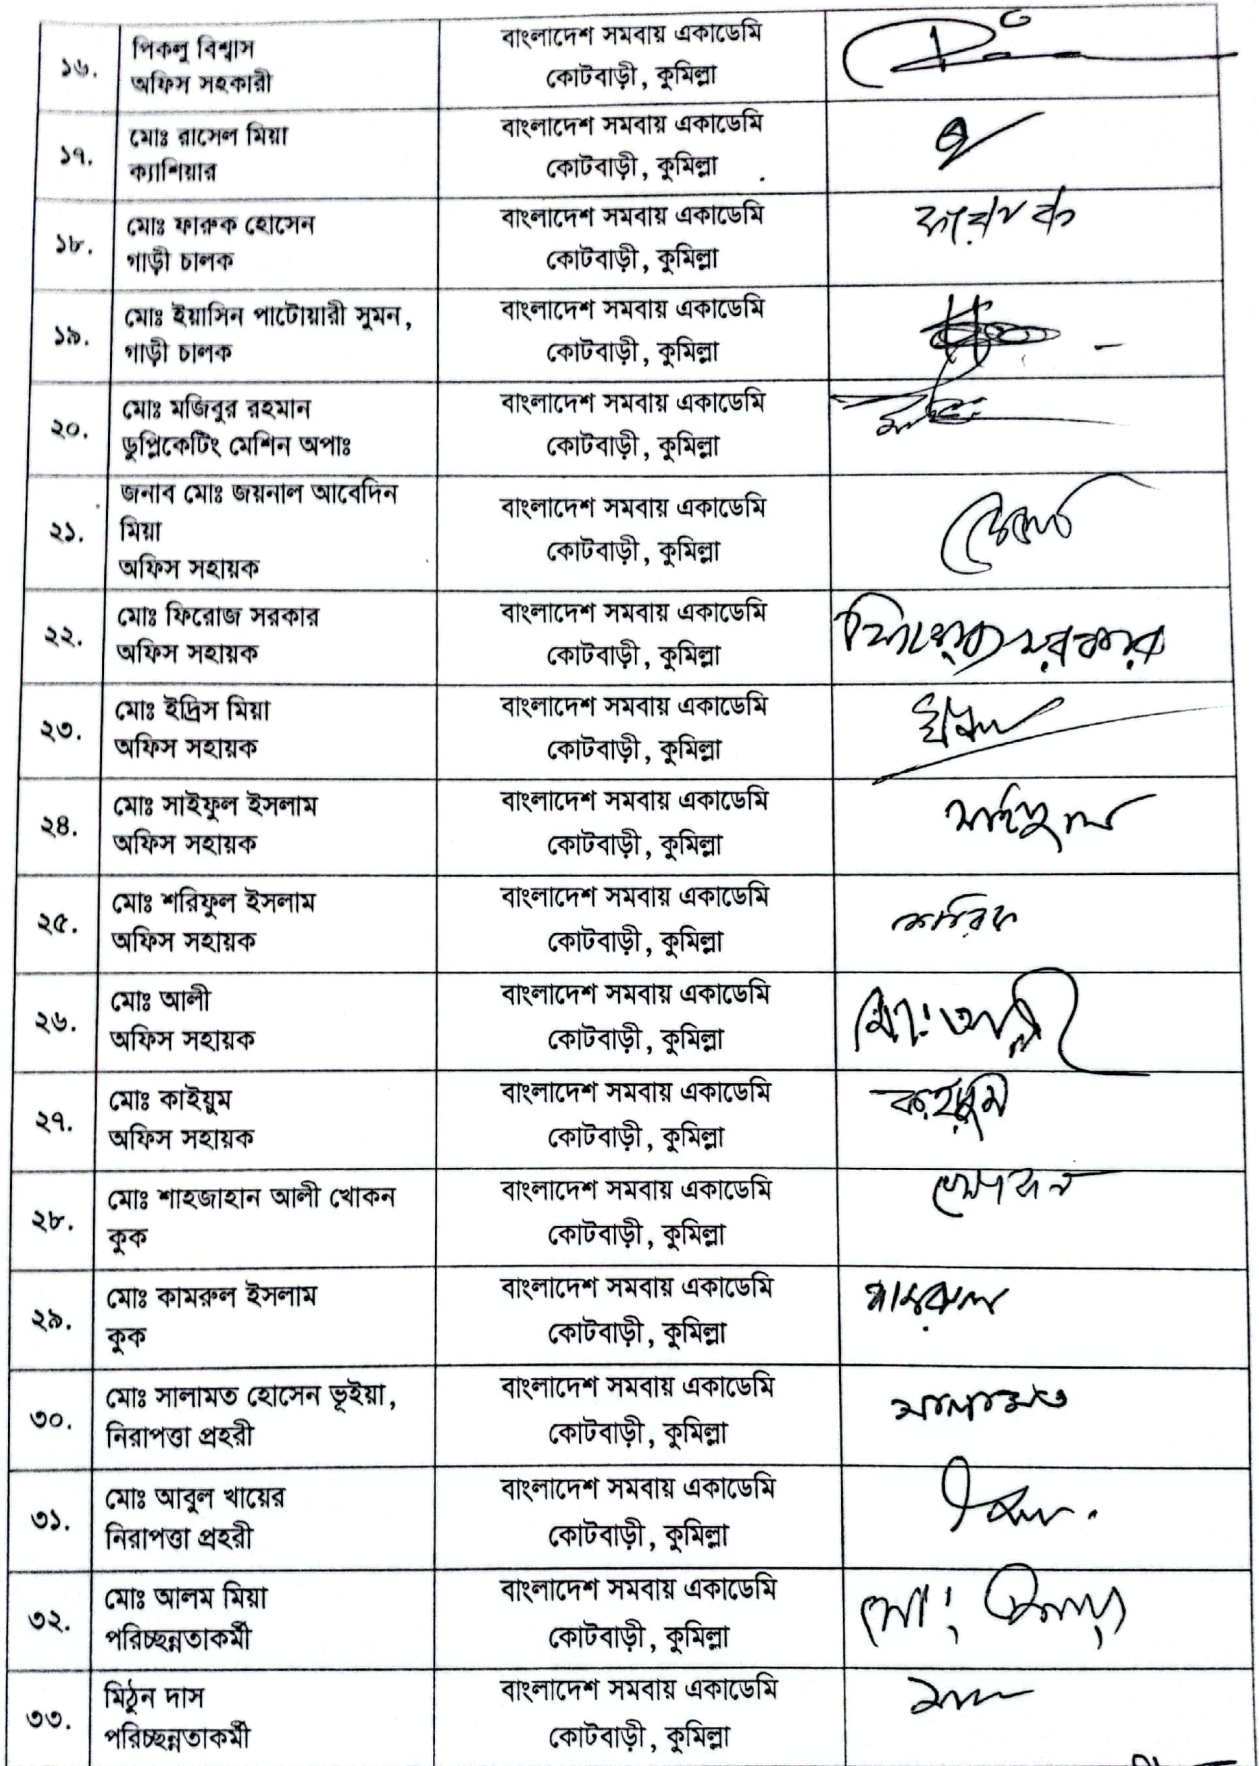 ১৬.
পিকলু বিশ্বাস
অফিস সহকারী
বাংলাদেশ সমবায় একাডেমি
কোটবাড়ী, কুমিল্লা
১৭.
মোঃ রাসেল মিয়া
ক্যাশিয়ার
বাংলাদেশ সমবায় একাডেমি
কোটবাড়ী, কুমিল্লা
১৮.
মোঃ ফারুক হোসেন
গাড়ী চালক
বাংলাদেশ সমবায় একাডেমি
কোটবাড়ী, কুমিল্লা
১৯.
মোঃ ইয়াসিন পাটোয়ারী সুমন,
গাড়ী চালক
বাংলাদেশ সমবায় একাডেমি
কোটবাড়ী, কুমিল্লা
২০.
মোঃ মজিবুর রহমান
ডুপ্লিকেটিং মেশিন অপাঃ
বাংলাদেশ সমবায় একাডেমি
কোটবাড়ী, কুমিল্লা
২১.
জনাব মোঃ জয়নাল আবেদিন
মিয়া
অফিস সহায়ক
বাংলাদেশ সমবায় একাডেমি
কোটবাড়ী, কুমিল্লা
২২.
মোঃ ফিরোজ সরকার
অফিস সহায়ক
বাংলাদেশ সমবায় একাডেমি
কোটবাড়ী, কুমিল্লা
২৩.
মোঃ ইদ্রিস মিয়া
অফিস সহায়ক
বাংলাদেশ সমবায় একাডেমি
কোটবাড়ী, কুমিল্লা
২৪.
মোঃ সাইফুল ইসলাম
অফিস সহায়ক
বাংলাদেশ সমবায় একাডেমি
কোটবাড়ী, কুমিল্লা
২৫.
মোঃ শরিফুল ইসলাম
অফিস সহায়ক
বাংলাদেশ সমবায় একাডেমি
কোটবাড়ী, কুমিল্লা
২৬.
মোঃ আলী
অফিস সহায়ক
বাংলাদেশ সমবায় একাডেমি
কোটবাড়ী, কুমিল্লা
২৭.
মোঃ কাইয়ুম
অফিস সহায়ক
বাংলাদেশ সমবায় একাডেমি
কোটবাড়ী, কুমিল্লা
২৮.
মোঃ শাহজাহান আলী খোকন
কুক
বাংলাদেশ সমবায় একাডেমি
কোটবাড়ী, কুমিল্লা
২৯.
মোঃ কামরুল ইসলাম
কুক
বাংলাদেশ সমবায় একাডেমি
কোটবাড়ী, কুমিল্লা
৩০.
মোঃ সালামত হোসেন ভূইয়া,
নিরাপত্তা প্রহরী
বাংলাদেশ সমবায় একাডেমি
কোটবাড়ী, কুমিল্লা
সালামত
৩১.
মোঃ আবুল খায়ের
নিরাপত্তা প্রহরী
বাংলাদেশ সমবায় একাডেমি
কোটবাড়ী, কুমিল্লা
৩২.
মোঃ আলম মিয়া
পরিচ্ছন্নতাকর্মী
বাংলাদেশ সমবায় একাডেমি
কোটবাড়ী, কুমিল্লা
৩৩.
মিঠুন দাস
পরিচ্ছন্নতাকর্মী
বাংলাদেশ সমবায় একাডেমি
কোটবাড়ী, কুমিল্লা